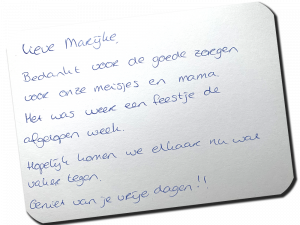 Lieve Marijke,
Bedankt voor de goede zorgen
voor onze meisjes en mama.
Het was weer een feestje de
afgelopen week.
Hopelijk komen we elkaar nu wat
vaker tegen.
Geniet van je vrije dagen!!